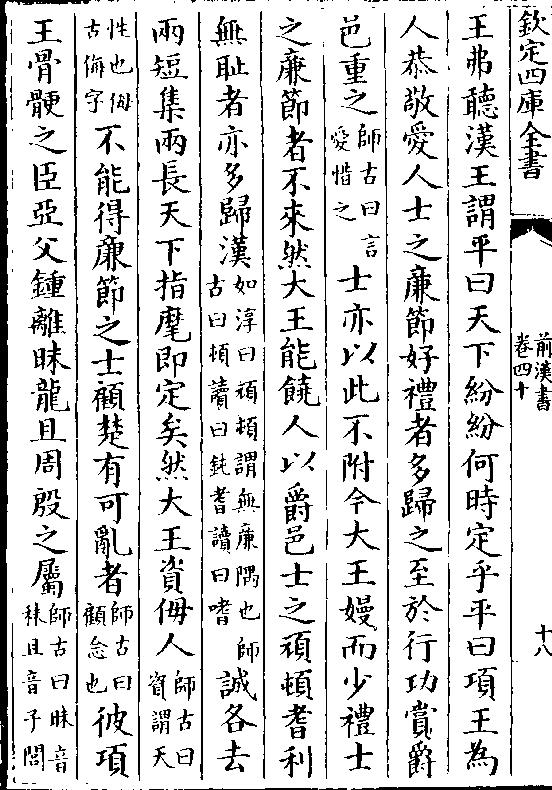 欽定四庫全書
前漢書
卷四十
十八
王弗聽漢王謂平曰天下紛紛何時定乎平曰項王為
人恭敬愛人士之廉節好禮者多歸之至於行功賞爵
邑重之師古曰言愛惜之士亦以此不附今大王嫚而少禮士
之廉節者不來然大王能饒人以爵邑士之頑頓耆利
無恥者亦多歸漢如淳曰頑頓謂無廉隅也師古曰頓讀曰鈍耆讀曰嗜誠各去
兩短集兩長天下指麾即定矣然大王資侮人師古曰資謂天
性也侮古侮字不能得廉節之士顧楚有可亂者師古曰顧念也彼項
王骨骾之臣亞父鍾離眛龍且周殷之屬師古曰眛音秣且音子閭